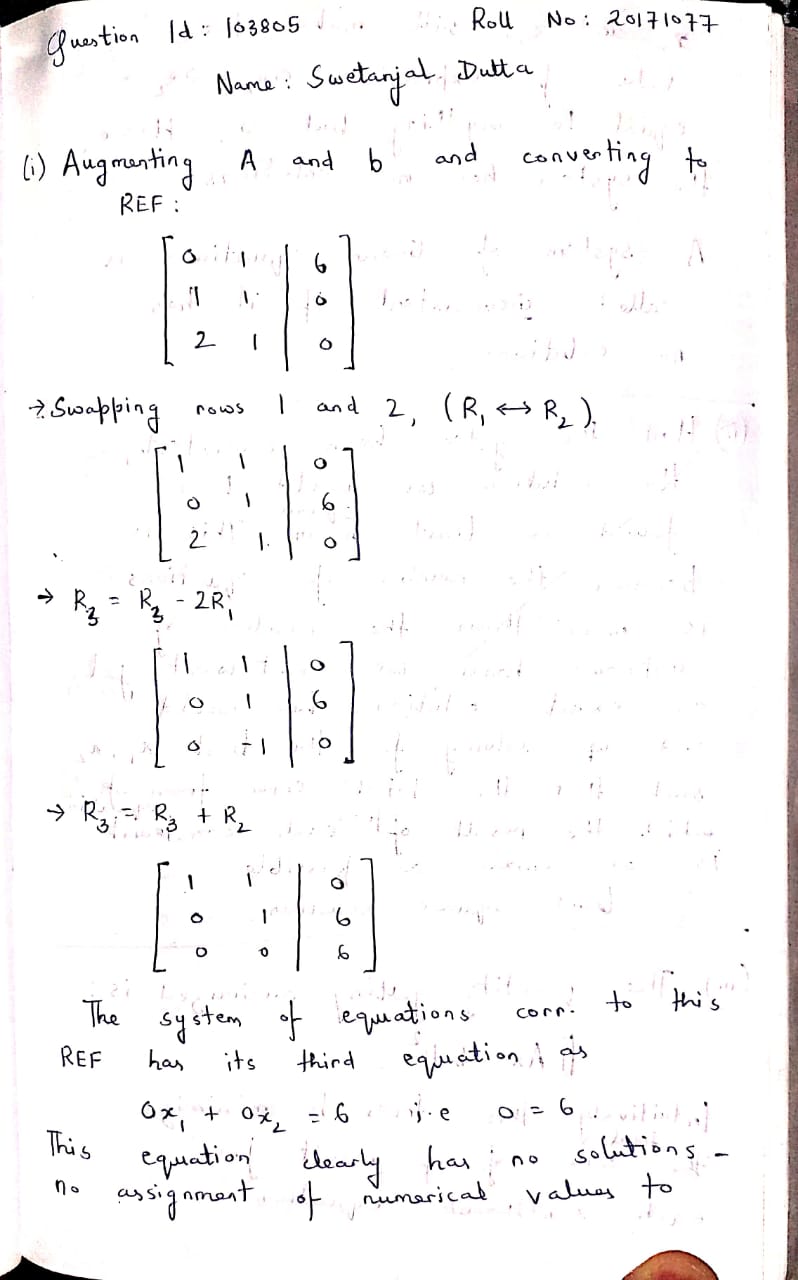 Question Id : 103805 Roll No : 20171077
Name : Swetanjal Dutta
(i) Augmenting A and b and converting to
REF :
0 1 | 6
1 1 | 0
2 1 | 0
→ Swapping rows 1 and 2, (R₁ ↔ R₂).
1 1 | 0
0 1 | 6
2 1 | 0
→ R₃ = R₃ - 2R₁
1 1 | 0
0 1 | 6
0 -1 | 0
→ R₃ = R₃ + R₂
1 1 | 0
0 1 | 6
0 0 | 6
The system of equations corr. to this
REF has its third equation as
0x₁ + 0x₂ = 6 i.e 0 = 6
This equation clearly has no solutions -
no assignment of numerical values to